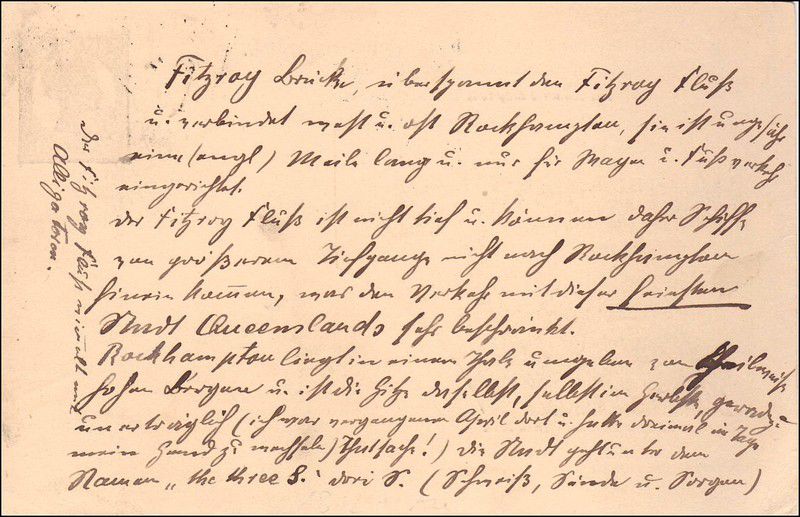 Fitzroy Brücke, überspannt den Fitzroy Fluß
u. verbindet west u. ost Rockhampton, sie ist ungefähr
eine (engl) Meile lang u. nur für Wagen u. Fußverkehr
eingerichtet.
Der Fitzroy Fluß ist nicht tief u. können daher Schiffe
von größerem Tiefgange nicht nach Rockhampton
hinein kom̄en, was den Verkehr mit dieser
Stadt Queenslands sehr beschränkt.
Rockhampton liegt in einem Thale umgeben von theilweise
hohen Bergen u. ist die Hitze daselbst, selbst im Herbste geradezu
unerträglich (ich war vergangenen April dort u. hatte dreimal im Tage
mein Hemd zu wechseln, Thatsache!) die Stadt geht unter dem
Namen „the three S.“ drei S. (Schweiß, Sünde u. Sorgen)
Der Fitzroy Fluß wim̄elt von
Alligatoren.